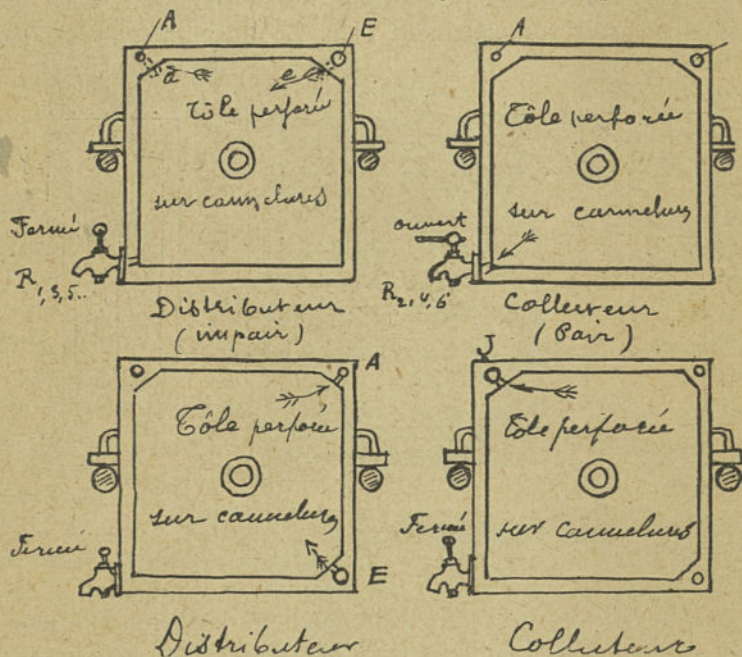 A
E
a
e
Tôle perforée
sur cannelures
Fermé
R 1, 3, 5..
Distributeur
(impair)
A
Tôle perforée
sur cannelures
ouvert
R 2, 4, 6
Collecteur
(Pair)
A
Tôle perforée
sur cannelures
Fermé
E
Distributeur
J
Tôle perforée
sur cannelures
Fermé
Collecteur